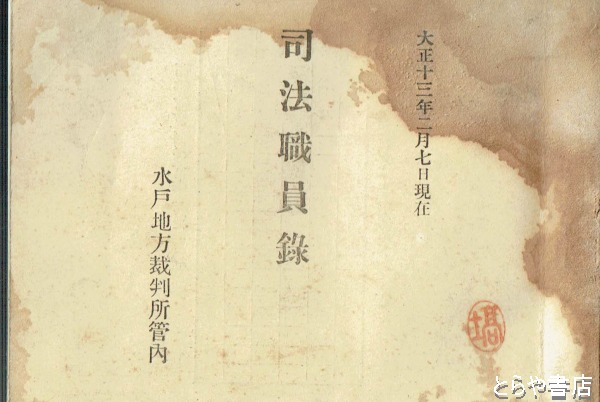 大正十三年二月七日現在
司法職員錄
水戸地方裁判所管內
塙
とらや書店